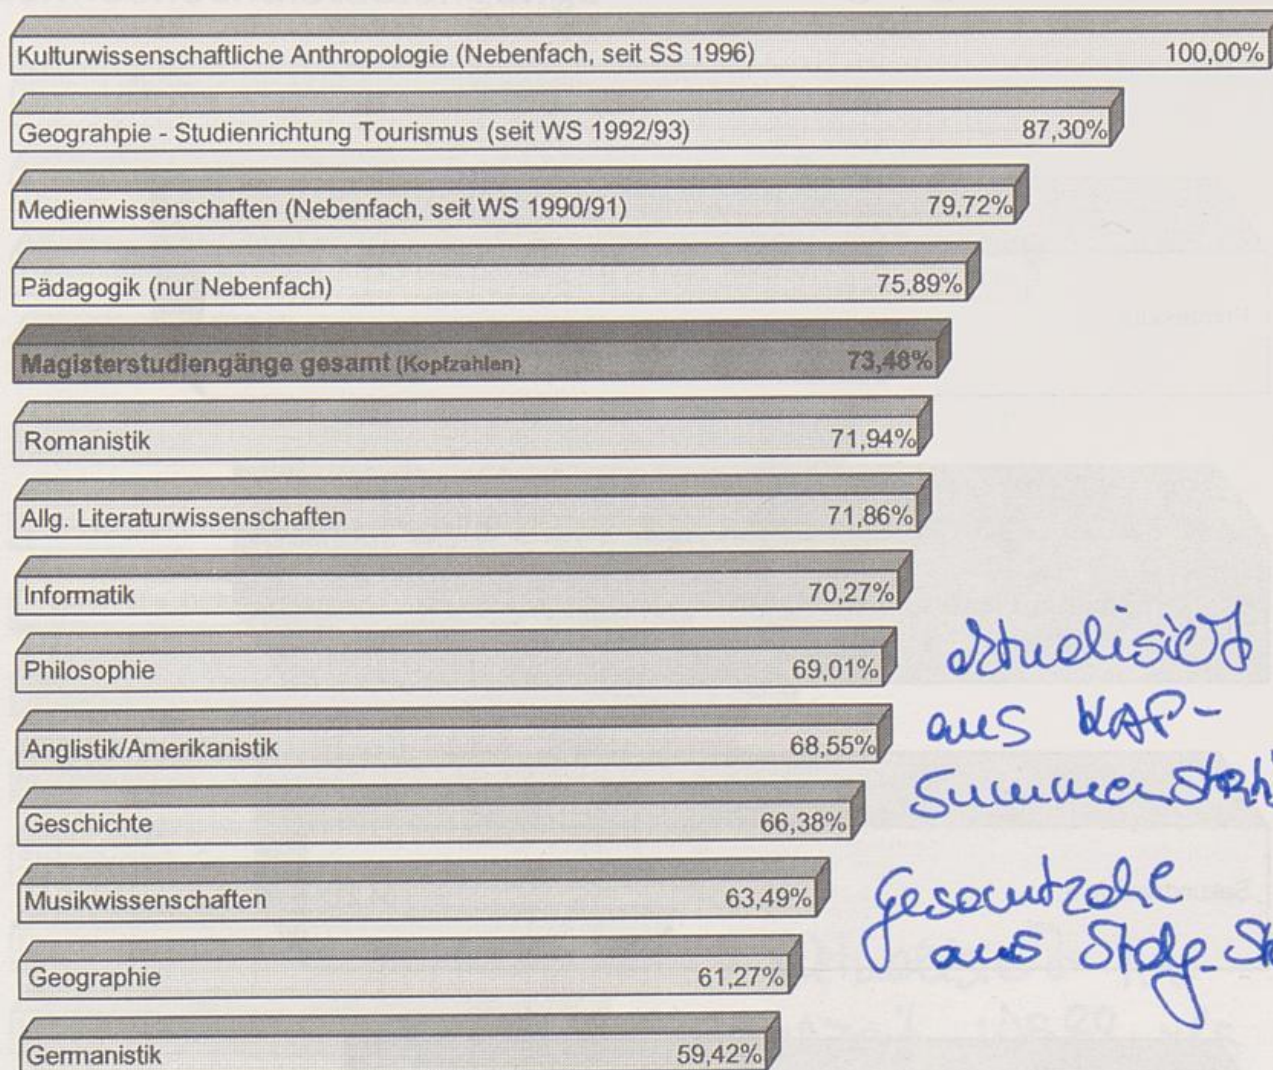 Kulturwissenschaftliche Anthropologie (Nebenfach, seit SS 1996) 100,00%
Geograhpie - Studienrichtung Tourismus (seit WS 1992/93) 87,30%
Medienwissenschaften (Nebenfach, seit WS 1990/91) 79,72%
Pädagogik (nur Nebenfach) 75,89%
Magisterstudiengänge gesamt (Kopfzahlen) 73,48%
Romanistik 71,94%
Allg. Literaturwissenschaften 71,86%
Informatik 70,27%
Philosophie 69,01%
Anglistik/Amerikanistik 68,55%
Geschichte 66,38%
Musikwissenschaften 63,49%
Geographie 61,27%
Germanistik 59,42%
aktualisiert
aus KAP-
Gesamtzahl
aus